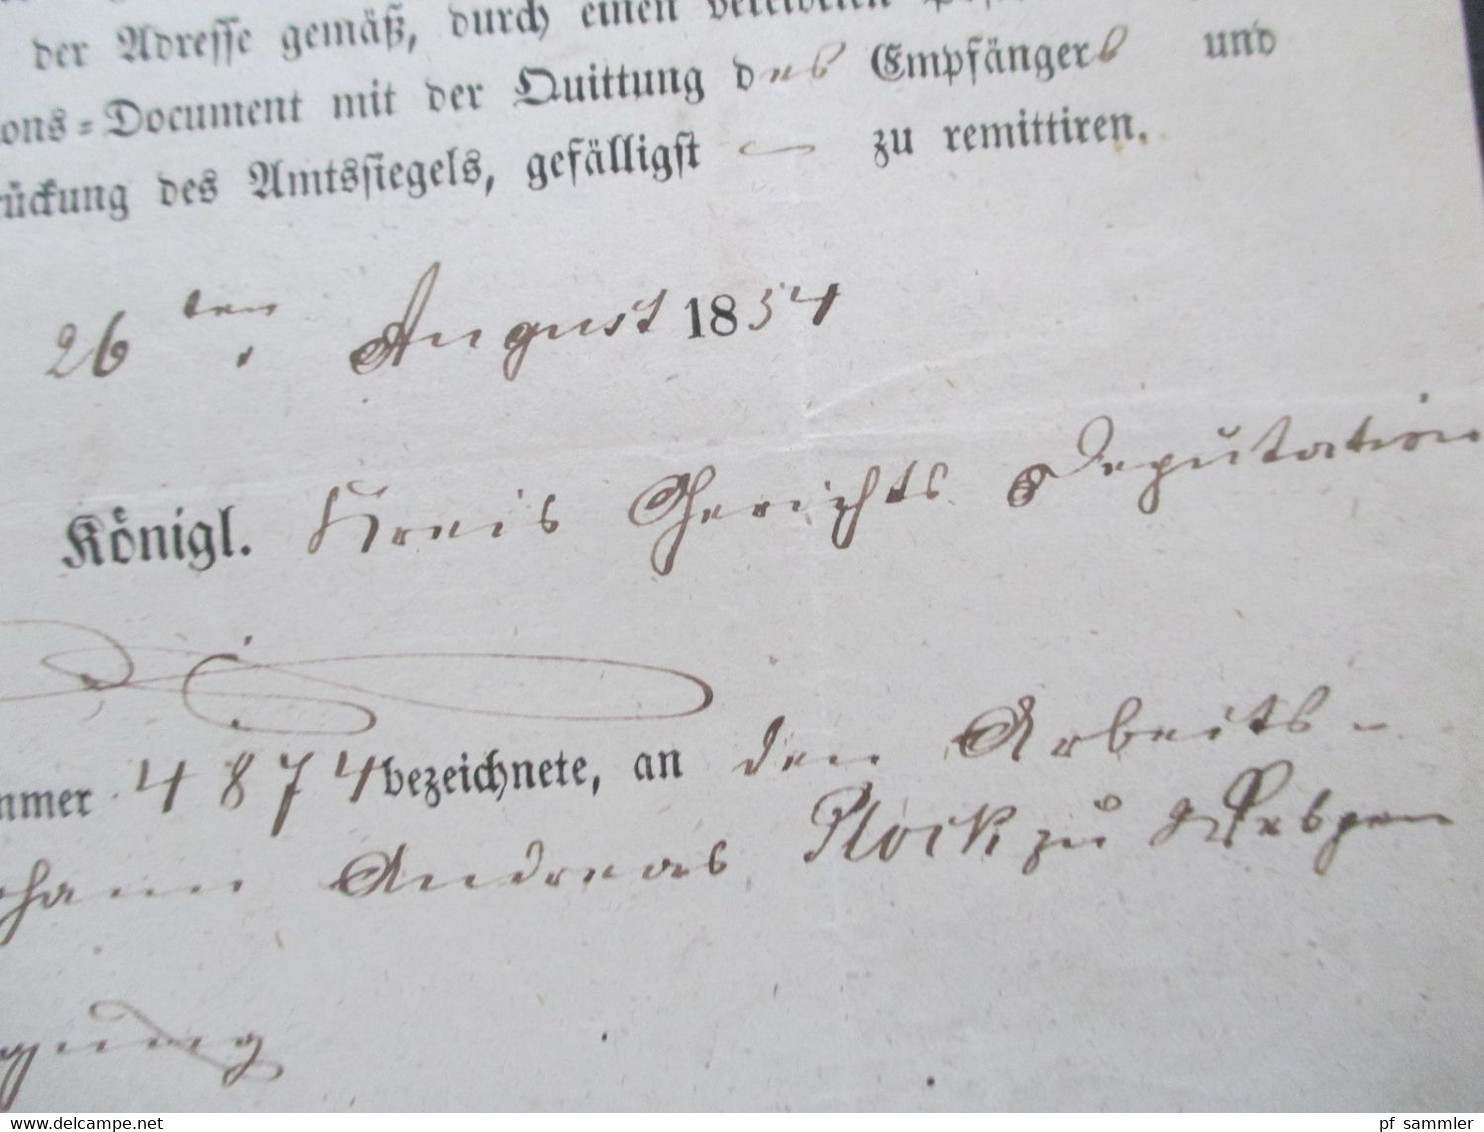 der Adresse gemäß, durch einen vereideten
ons-Document mit der Quittung des Empfängers und
rückung des Amtssiegels, gefälligst — zu remittiren.
26 ten August 1854
Königl. Kreis Gerichts Deputation
mmer 4874 bezeichnete, an den Arbeits-
hann Andreas Plock zu
gung
www.delcampe.net
pf sammler